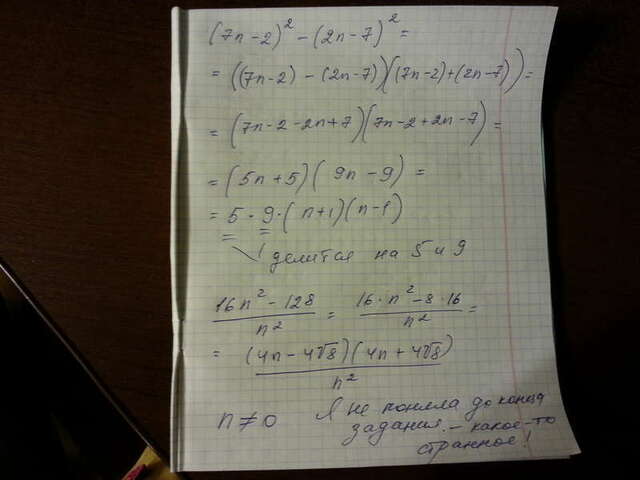 (7n-2)² - (2n-7)² =
= ((7n-2) - (2n-7))((7n-2)+(2n-7)) =
= (7n-2-2n+7)(7n-2+2n-7) =
= (5n+5)(9n-9) =
= 5·9·(n+1)(n-1)
делится на 5 и 9
(16n²-128)/n² = (16·n²-8·16)/n² =
= (4n-4√8)(4n+4√8)/n²
n≠0 Я не поняла до конца
задания. - какое-то
странное!